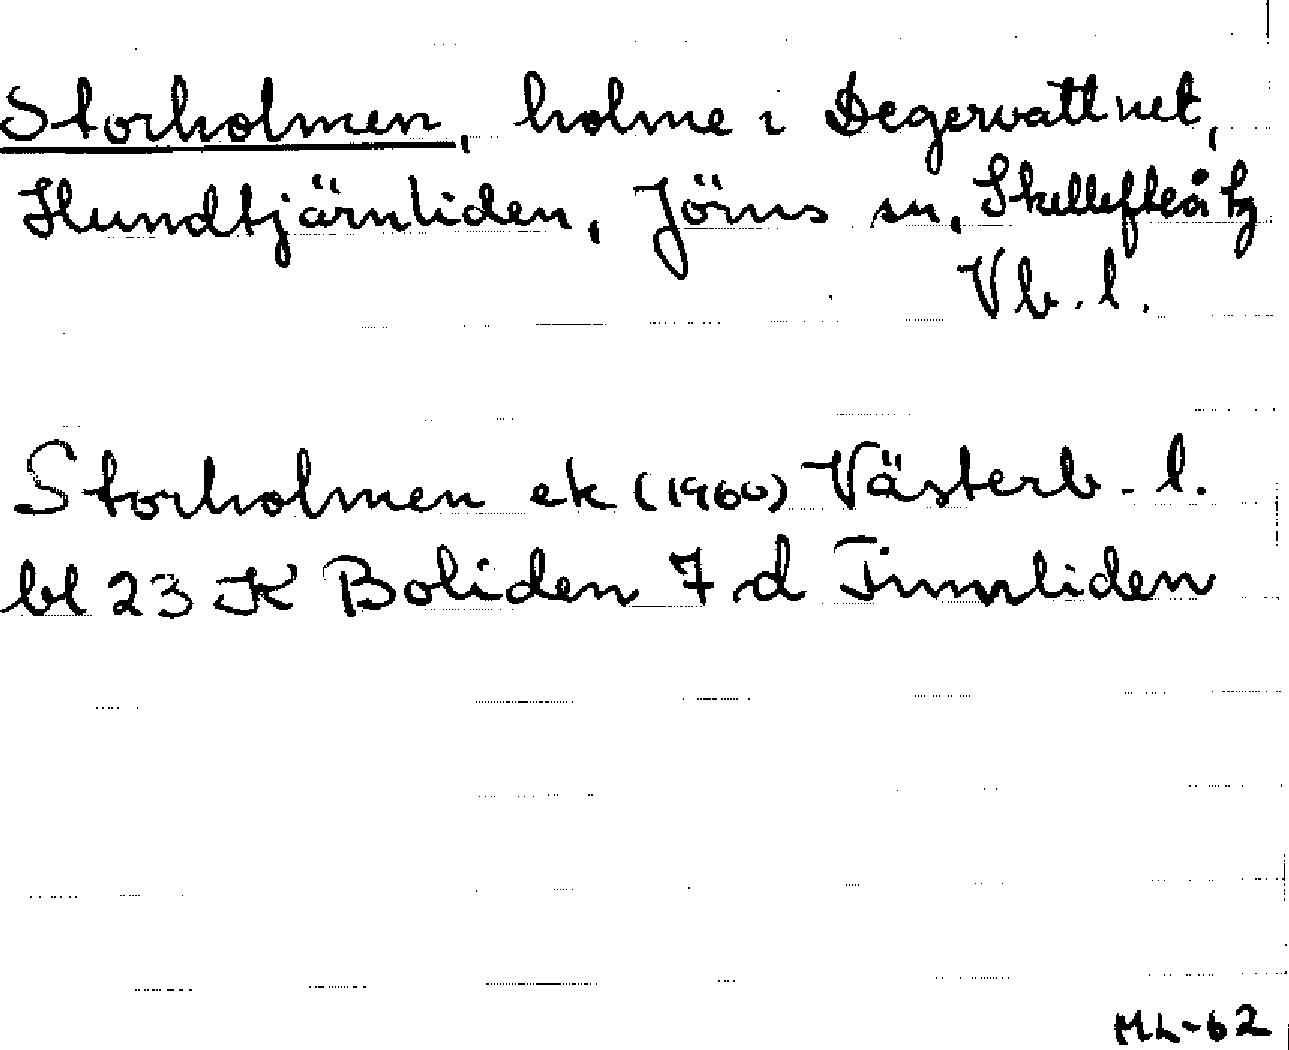 Storholmen, holme i Degervattnet,
Hundtjärnliden, Jörns sn, Skellefteå tg
Vb. l.
Storholmen ek (1960) Västerb. l.
bl 23 K Boliden 7 d Finnliden
ML-62